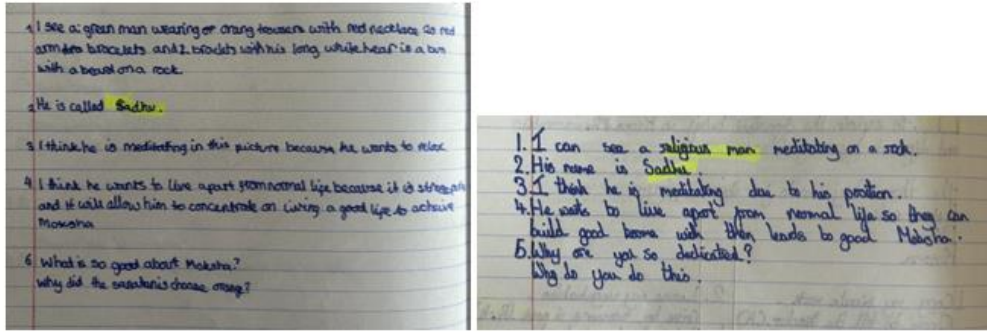 1. I see a green man wearing or orang trousers with red necklace so red
arm bracelets and 2 braclets with his long white hear is a bun
with a beard on a rock.
2 He is called Sadhu.
3 I think he is meditating in this picture because he wants to relax
4. I think he wants to live apart from normal life because it is
and it will allow him to concentrate on living a good life to achieve
Moksha
6. What is so good about Moksha?
why did the sanatanis choose orang?
1. I can see a religious man meditating on a rock.
2. His name is Sadhu.
3. I think he is meditating due to his position.
4. He wants to live apart from normal life so they can
build good karma with then leads to good Moksha.
5. Why are you so dedicated?
Why do you do this.